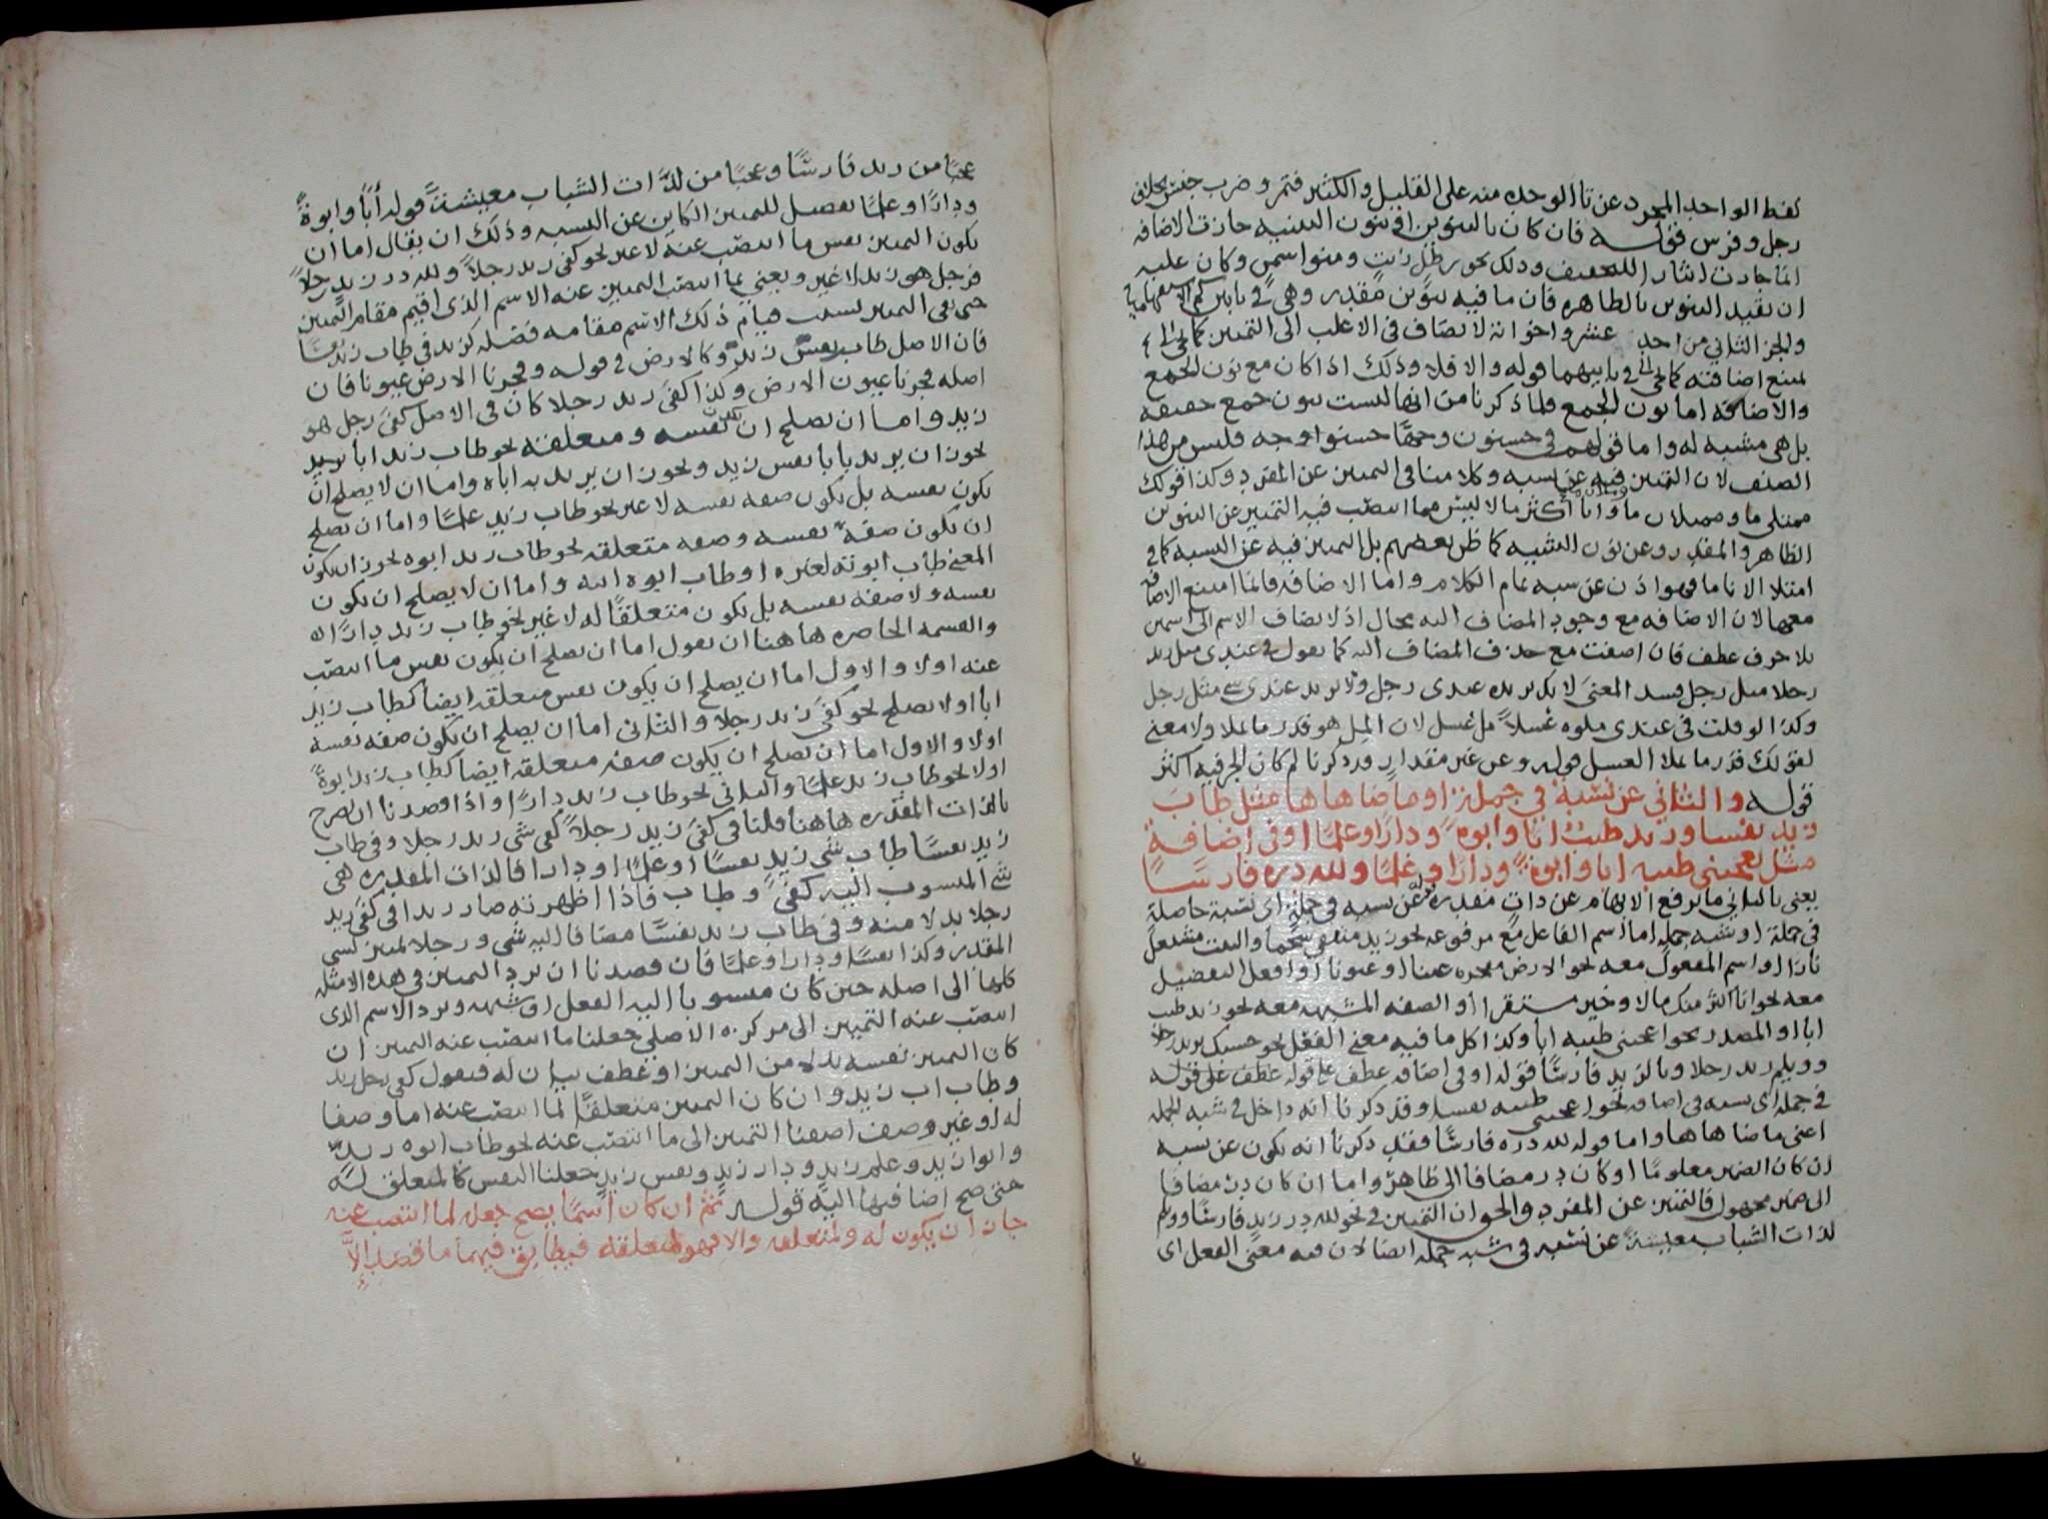 لفظ الواحد المجرد عن تا الوحده منه على القليل والكثير فتمر وضرب جنس بخلاف
رجل وفرس قوله فان كان بالتنوين او بنون التثنيه جازت الاضافه
انما جازت ايثارا للتخفيف وذلك نحو رطل زيت ومنوا سمن وكان عليه
ان يقيد التنوين بالظاهره فان ما فيه تنوين مقدر وهي في باب كم الاستفهاميه
والجز الثاني من احد عشر واخواته لا يضاف في الاغلب الى التمييز كما يجي
لمنع اضافته كما يجي في بابيهما قوله والا فلا وذلك اذا كان مع نون الجمع
والاضافه اما نون الجمع فلما ذكرنا من انها ليست نون جمع حقيقه
بل هي مشبه له واما قولهم في حسنون وجوها حسنوا وجه فليس من هذا
الصنف لان التمييز فيه عن نسبه وكلامنا في التمييز عن المفرد وكذا قولك
ممتلي ما وممتلان ما وانا اكثر مالا ليس مما انتصب فيه التمييز عن التنوين
الظاهر والمقدر وعن نون التثنيه كما ظن بعضهم بل التمييز فيه عن النسبه كما في
امتلا الانا ما فهو اذن عن نسبه تمام الكلام واما الاضافه فانما امتنع الاضافه
معها لان الاضافه مع وجود المضاف اليه محال اذ لا يضاف الاسم الى اسمين
بلا حرف عطف فان اضفت مع حذف المضاف اليه كما تقول في عندي مثل زيد
رجلا مثل رجل فسد المعنى لانك تريد عندي رجل ولا تريد عندي شي مثل رجل
وكذا لو قلت في عندي ملوه عسلا مل عسل لان المل هو قدر ما يملا ولا معنى
لقولك قدر ما يملا العسل قوله وعن غير مقدار قد ذكرنا لم كان الجر فيه اكثر
قوله والثاني عن نسبة في جملة او ما ضاهاها مثل طاب
زيد نفسا وزيد طيب ابا وابوة ودارا وعلما او في اضافة
مثل يعجبني طيبه ابا وابوة ودارا وعلما ولله دره فارسا
يعني بالثاني ما يرفع الابهام عن ذات مقدره عن نسبه في جملة اي نسبة حاصلة
في جملة او شبه جملة اما اسم الفاعل مع مرفوعه نحو زيد متفقئ شحما والبيت مشتعل
نارا او اسم المفعول معه نحو الارض مفجره عينا او عيونا او افعل التفضيل
معه نحو انا اكثر منك مالا وخير مستقرا او الصفه المشبهه معه نحو زيد طيب
ابا او المصدر نحو اعجبني طيبه ابا وكذا كل ما فيه معنى الفعل نحو حسبك بزيد رجلا
وويلم زيد رجلا ويا لزيد فارسا قوله او في اضافه عطف على قوله
في جملة اي نسبه في اضافه نحو اعجبني طيبه نفسا وقد ذكرنا انه داخل في شبه الجمله
اعني ما ضاهاها واما قوله لله دره فارسا فقد ذكرنا انه يكون عن نسبه
ان كان الضمير معلوما او كان در مضافا الى ظاهر واما ان كان در مضافا
الى ضمير مجهول فالتمييز عن المفرد والحق ان التمييز في نحو لله در زيد فارسا وويلم
لذات الشباب معيشة عن نسبه في شبه جملة ايضا لان فيه معنى الفعل اي
عجبا من زيد فارسا وعجبا من لذات الشباب معيشة قوله ابا وابوة
ودارا وعلما تفصيل للتمييز الكاين عن النسبه وذلك ان يقال اما ان
يكون التمييز نفس ما انتصب عنه لا غير نحو كفى زيد رجلا ولله در زيد رجلا
فرجل هو زيد لا غير ويعني بما انتصب التمييز عنه الاسم الذي اقيم مقام التمييز
حتى بقي التمييز بسبب قيام ذلك الاسم مقامه فضله كزيد في طاب زيد نفسا
فان الاصل طاب نفس زيد وكالارض في قوله وفجرنا الارض عيونا فان
اصله فجرنا عيون الارض وكذا كفى زيد رجلا كان في الاصل كفى رجل هو
زيد واما ان يصلح ان يكون نفسه ومتعلقه نحو طاب زيد ابا يريد
يجوز ان يريد بابا نفس زيد ويجوز ان يريد به اباه واما ان لا يصلح ان
يكون نفسه بل يكون صفه نفسه لا غير نحو طاب زيد علما واما ان يصلح
ان يكون صفة نفسه وصفه متعلقه نحو طاب زيد ابوه يجوز ان يكون
المعنى طاب ابوته لغيره او طاب ابوه ابيه واما ان لا يصلح ان يكون
نفسه ولا صفه نفسه بل يكون متعلقا له لا غير نحو طاب زيد دارا
والقسمه الحاصره هاهنا ان نقول اما ان يصلح ان يكون نفس ما انتصب
عنه اولا والاول اما ان يصلح ان يكون نفس متعلقه ايضا كطاب زيد
ابا اولا يصلح نحو كفى زيد رجلا والثاني اما ان يصلح ان يكون صفه نفسه
اولا والاول اما ان يصلح ان يكون صفه متعلقه ايضا كطاب زيد ابوة
اولا نحو طاب زيد علما والثاني نحو طاب زيد دارا واذا قصدنا ان نصرح
بالذات المقدره هاهنا قلنا في كفى زيد رجلا كفى شي زيد رجلا وفي طاب
زيد نفسا طاب شي زيد نفسا او علما او دارا فالذات المقدره هي
شي المنسوب اليه كفى وطاب فاذا اظهرته صار زيدا في كفى زيد
رجلا بدلا منه وفي طاب زيد نفسا مضافا اليه شي ورجلا تمييز لشي
المقدر وكذا نفسا ودارا وعلما فان قصدنا ان نرد التمييز في هذه الامثله
كلها الى اصله حين كان منسوبا اليه الفعل او شبهه ونرد الاسم الذي
انتصب عنه التمييز الى مركزه الاصلي جعلنا ما انتصب عنه التمييز ان
كان التمييز نفسه بدلا من التمييز او عطف بيان له فنقول كفى رجل زيد
وطاب اب زيد وان كان التمييز متعلقا لما انتصب عنه اما وصفا
له او غير وصف اضفنا التمييز الى ما انتصب عنه نحو طاب ابوه زيد
وابوا زيد وعلم زيد ودار زيد ونفس زيد جعلنا النفس كالمتعلق له
حتى صح اضافتها اليه قوله ثم ان كان اسما يصح جعله لما انتصب عنه
جاز ان يكون له ولمتعلقه والا فهو لمتعلقه فيطابق فيهما ما قصد الا